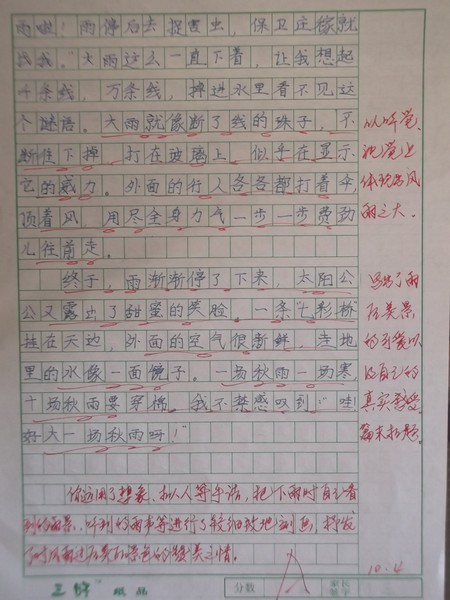 雨啦！雨停后去捉害虫，保卫庄稼就
找我。”大雨这么一直下着，让我想起
千条线，万条线，掉进水里看不见这
个谜语。大雨就像断了线的珠子，不
断往下掉，打在玻璃上，似乎在显示
它的威力。外面的行人各各都打着伞
顶着风，用尽全身力气一步一步费劲
儿往前走。
终于，雨渐渐停了下来，太阳公
公又露出了甜蜜的笑脸。一条“七彩桥”
挂在天边，外面的空气很新鲜，洼地
里的水像一面镜子。一场秋雨一场寒，
十场秋雨要穿棉。我不禁感叹到：“哇
好大一场秋雨呀！”
从听觉、
视觉上
体现出风
雨之大。
写出了雨
后美景
的可爱以
及自己的
真实感受，
篇末扣题。
你运用了想象、拟人等手法，把下雨时自己看
到的雨景、听到的雨声等进行了较细致地刻画，抒发
了对
之情。
10.4
分数
家长
签字